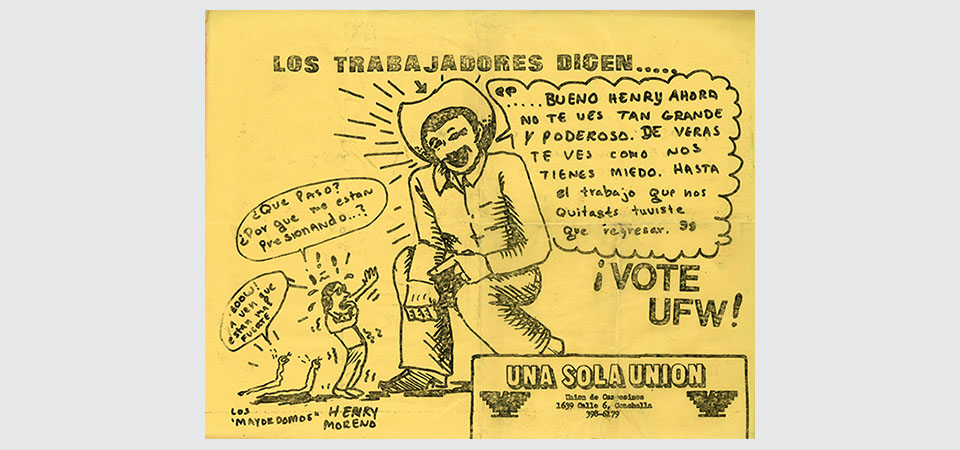 LOS TRABAJADORES DICEN.....
"
..... BUENO HENRY AHORA
NO TE VES TAN GRANDE
Y PODEROSO. DE VERAS
TE VES COMO NOS
TIENES MIEDO. HASTA
el trabajo que nos
Quitasts tuviste
que regresar. "
¿QUE PASO?
¿Por que me estan
PRESIONANDO...?
!!!!
BOOW!
A VEN que
estan
FUERTE!
¡VOTE
UFW!
UNA SOLA UNION
Union de Campesinos
1639 Calle 6, Coachella
398-6179
LOS
"MAYORDOMOS"
HENRY
MORENO